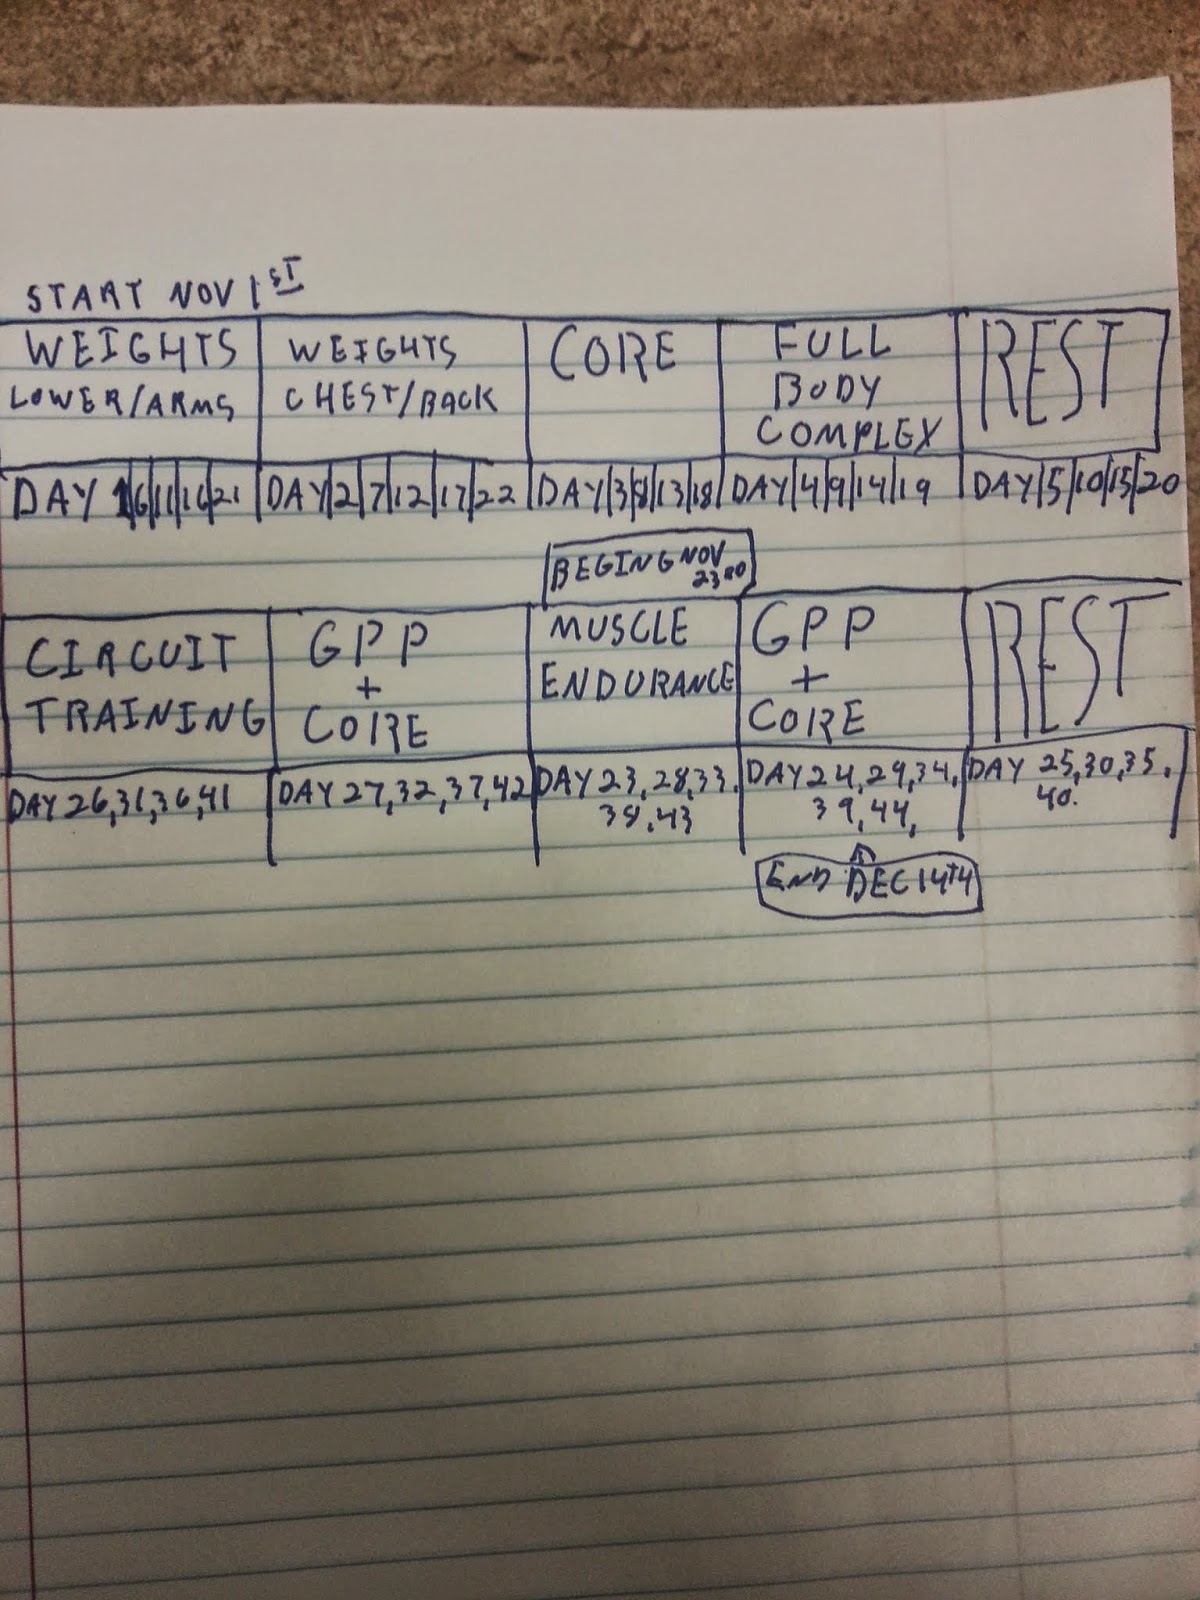 START NOV 1ST
WEIGHTS
LOWER/ARMS
WEIGHTS
CHEST/BACK
CORE
FULL
BODY
COMPLEX
REST
DAY 1|6|11|16|21
DAY|2|7|12|17|22
DAY|3|8|13|18
DAY|4|9|14|19
DAY|5|10|15|20
BEGING NOV
23RD
CIRCUIT
TRAINING
GPP
+
CORE
MUSCLE
ENDURANCE
GPP
+
CORE
REST
DAY 26,31,36,41
DAY 27,32,37,42
DAY 23,28,33,
38,43
DAY 24,29,34,
39,44,
DAY 25,30,35,
40.
END DEC 14TH